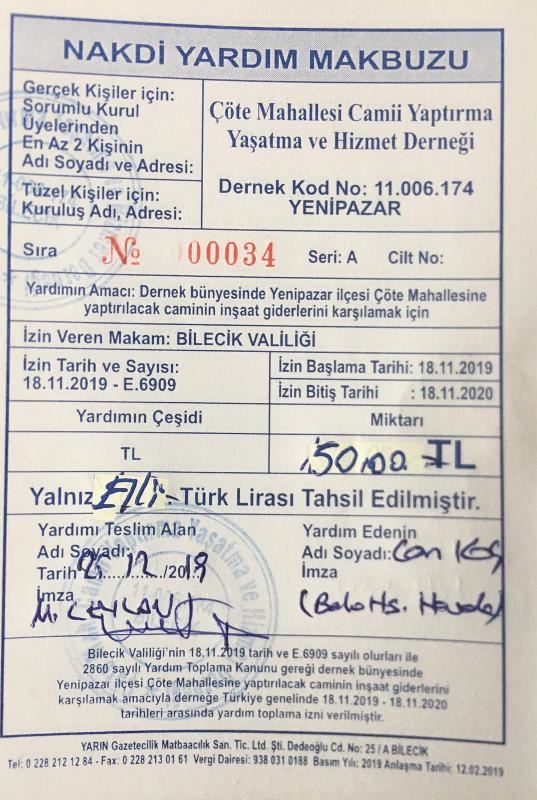 NAKDİ YARDIM MAKBUZU
Gerçek Kişiler için:
Sorumlu Kurul
Üyelerinden
En Az 2 Kişinin
Adı Soyadı ve Adresi:
Çöte Mahallesi Camii Yaptırma
Yaşatma ve Hizmet Derneği
Tüzel Kişiler için:
Kuruluş Adı, Adresi:
Dernek Kod No: 11.006.174
YENİPAZAR
Sıra № 000034 Seri: A Cilt No:
Yardımın Amacı: Dernek bünyesinde Yenipazar ilçesi Çöte Mahallesine
yaptırılacak caminin inşaat giderlerini karşılamak için
İzin Veren Makam: BİLECİK VALİLİĞİ
İzin Tarih ve Sayısı:
18.11.2019 - E.6909
İzin Başlama Tarihi: 18.11.2019
İzin Bitiş Tarihi : 18.11.2020
Yardımın Çeşidi Miktarı
TL 50,00 TL
Yalnız Elli Türk Lirası Tahsil Edilmiştir.
Yardımı Teslim Alan
Adı Soyadı:
Tarih 25.12./2019
İmza
M. CEYLAN
Yardım Edenin
Adı Soyadı: Can Koç
İmza
(Bala Hs. Havale)
Bilecik Valiliği'nin 18.11.2019 tarih ve E.6909 sayılı olurları ile
2860 sayılı Yardım Toplama Kanunu gereği dernek bünyesinde
Yenipazar ilçesi Çöte Mahallesine yaptırılacak caminin inşaat giderlerini
karşılamak amacıyla derneğe Türkiye genelinde 18.11.2019 - 18.11.2020
tarihleri arasında yardım toplama izni verilmiştir.
YARIN Gazetecilik Matbaacılık San. Tic. Ltd. Şti. Dedeoğlu Cd. No: 25 / A BİLECİK
Tel: 0 228 212 12 84 - Fax: 0 228 213 01 61 Vergi Dairesi: 938 031 0188 Basım Yılı: 2019 Anlaşma Tarihi: 12.02.2019